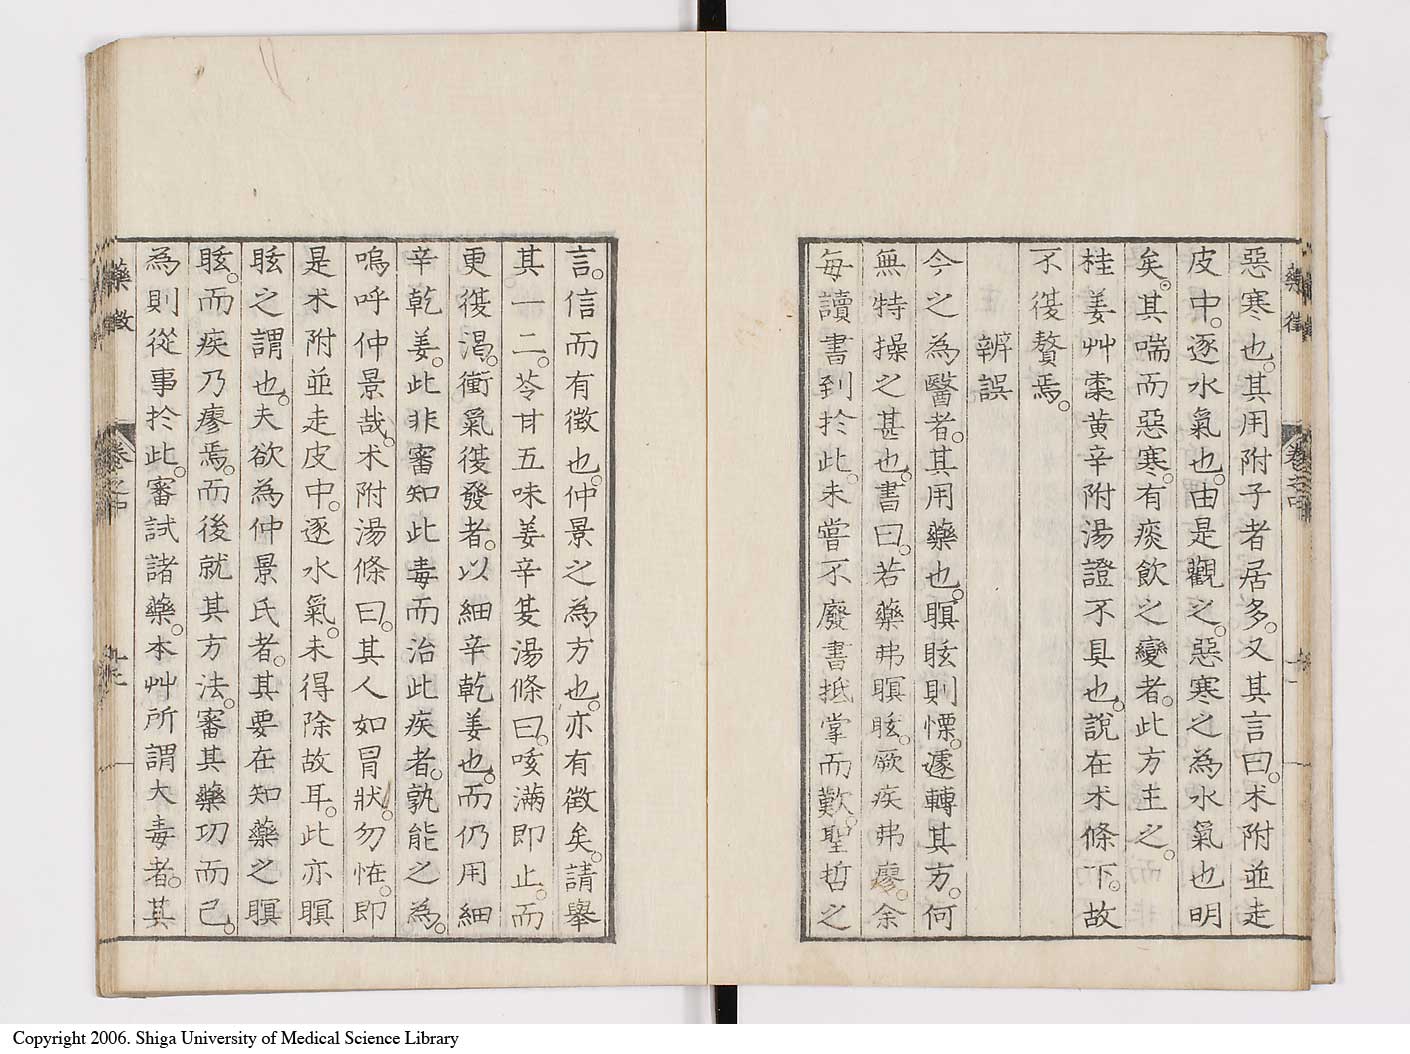 惡寒也。其用附子者居多。又其言曰。朮附並走
皮中。逐水氣也。由是觀之。惡寒之為水氣也明
矣。其喘而惡寒。有痰飲之變者。此方主之。
桂姜艸棗黄辛附湯證不具也。說在朮條下。故
不復贅焉。
辨誤
今之為醫者。其用藥也。瞑眩則慄。遽轉其方。何
無特操之甚也。書曰。若藥弗瞑眩。厥疾弗廖。余
每讀書到於此。未嘗不廢書抵掌而歎。聖哲之
言。信而有徵也。仲景之為方也。亦有徵矣。請舉
其一二。苓甘五味姜辛夏湯條曰。咳滿即止。而
更復渴。衝氣復發者。以細辛乾姜也。而仍用細
辛乾姜。此非審知此毒而治此疾者。孰能之為。
嗚呼仲景哉。朮附湯條曰。其人如冒狀。勿恠。即
是朮附並走皮中。逐水氣。未得除故耳。此亦瞑
眩之謂也。夫欲為仲景氏者。其要在知藥之瞑
眩。而疾乃廖焉。而後就其方法。審其藥功而已。
為則從事於此。審試諸藥。本艸所謂大毒者。其
藥徵
卷之中
Copyright 2006. Shiga University of Medical Science Library